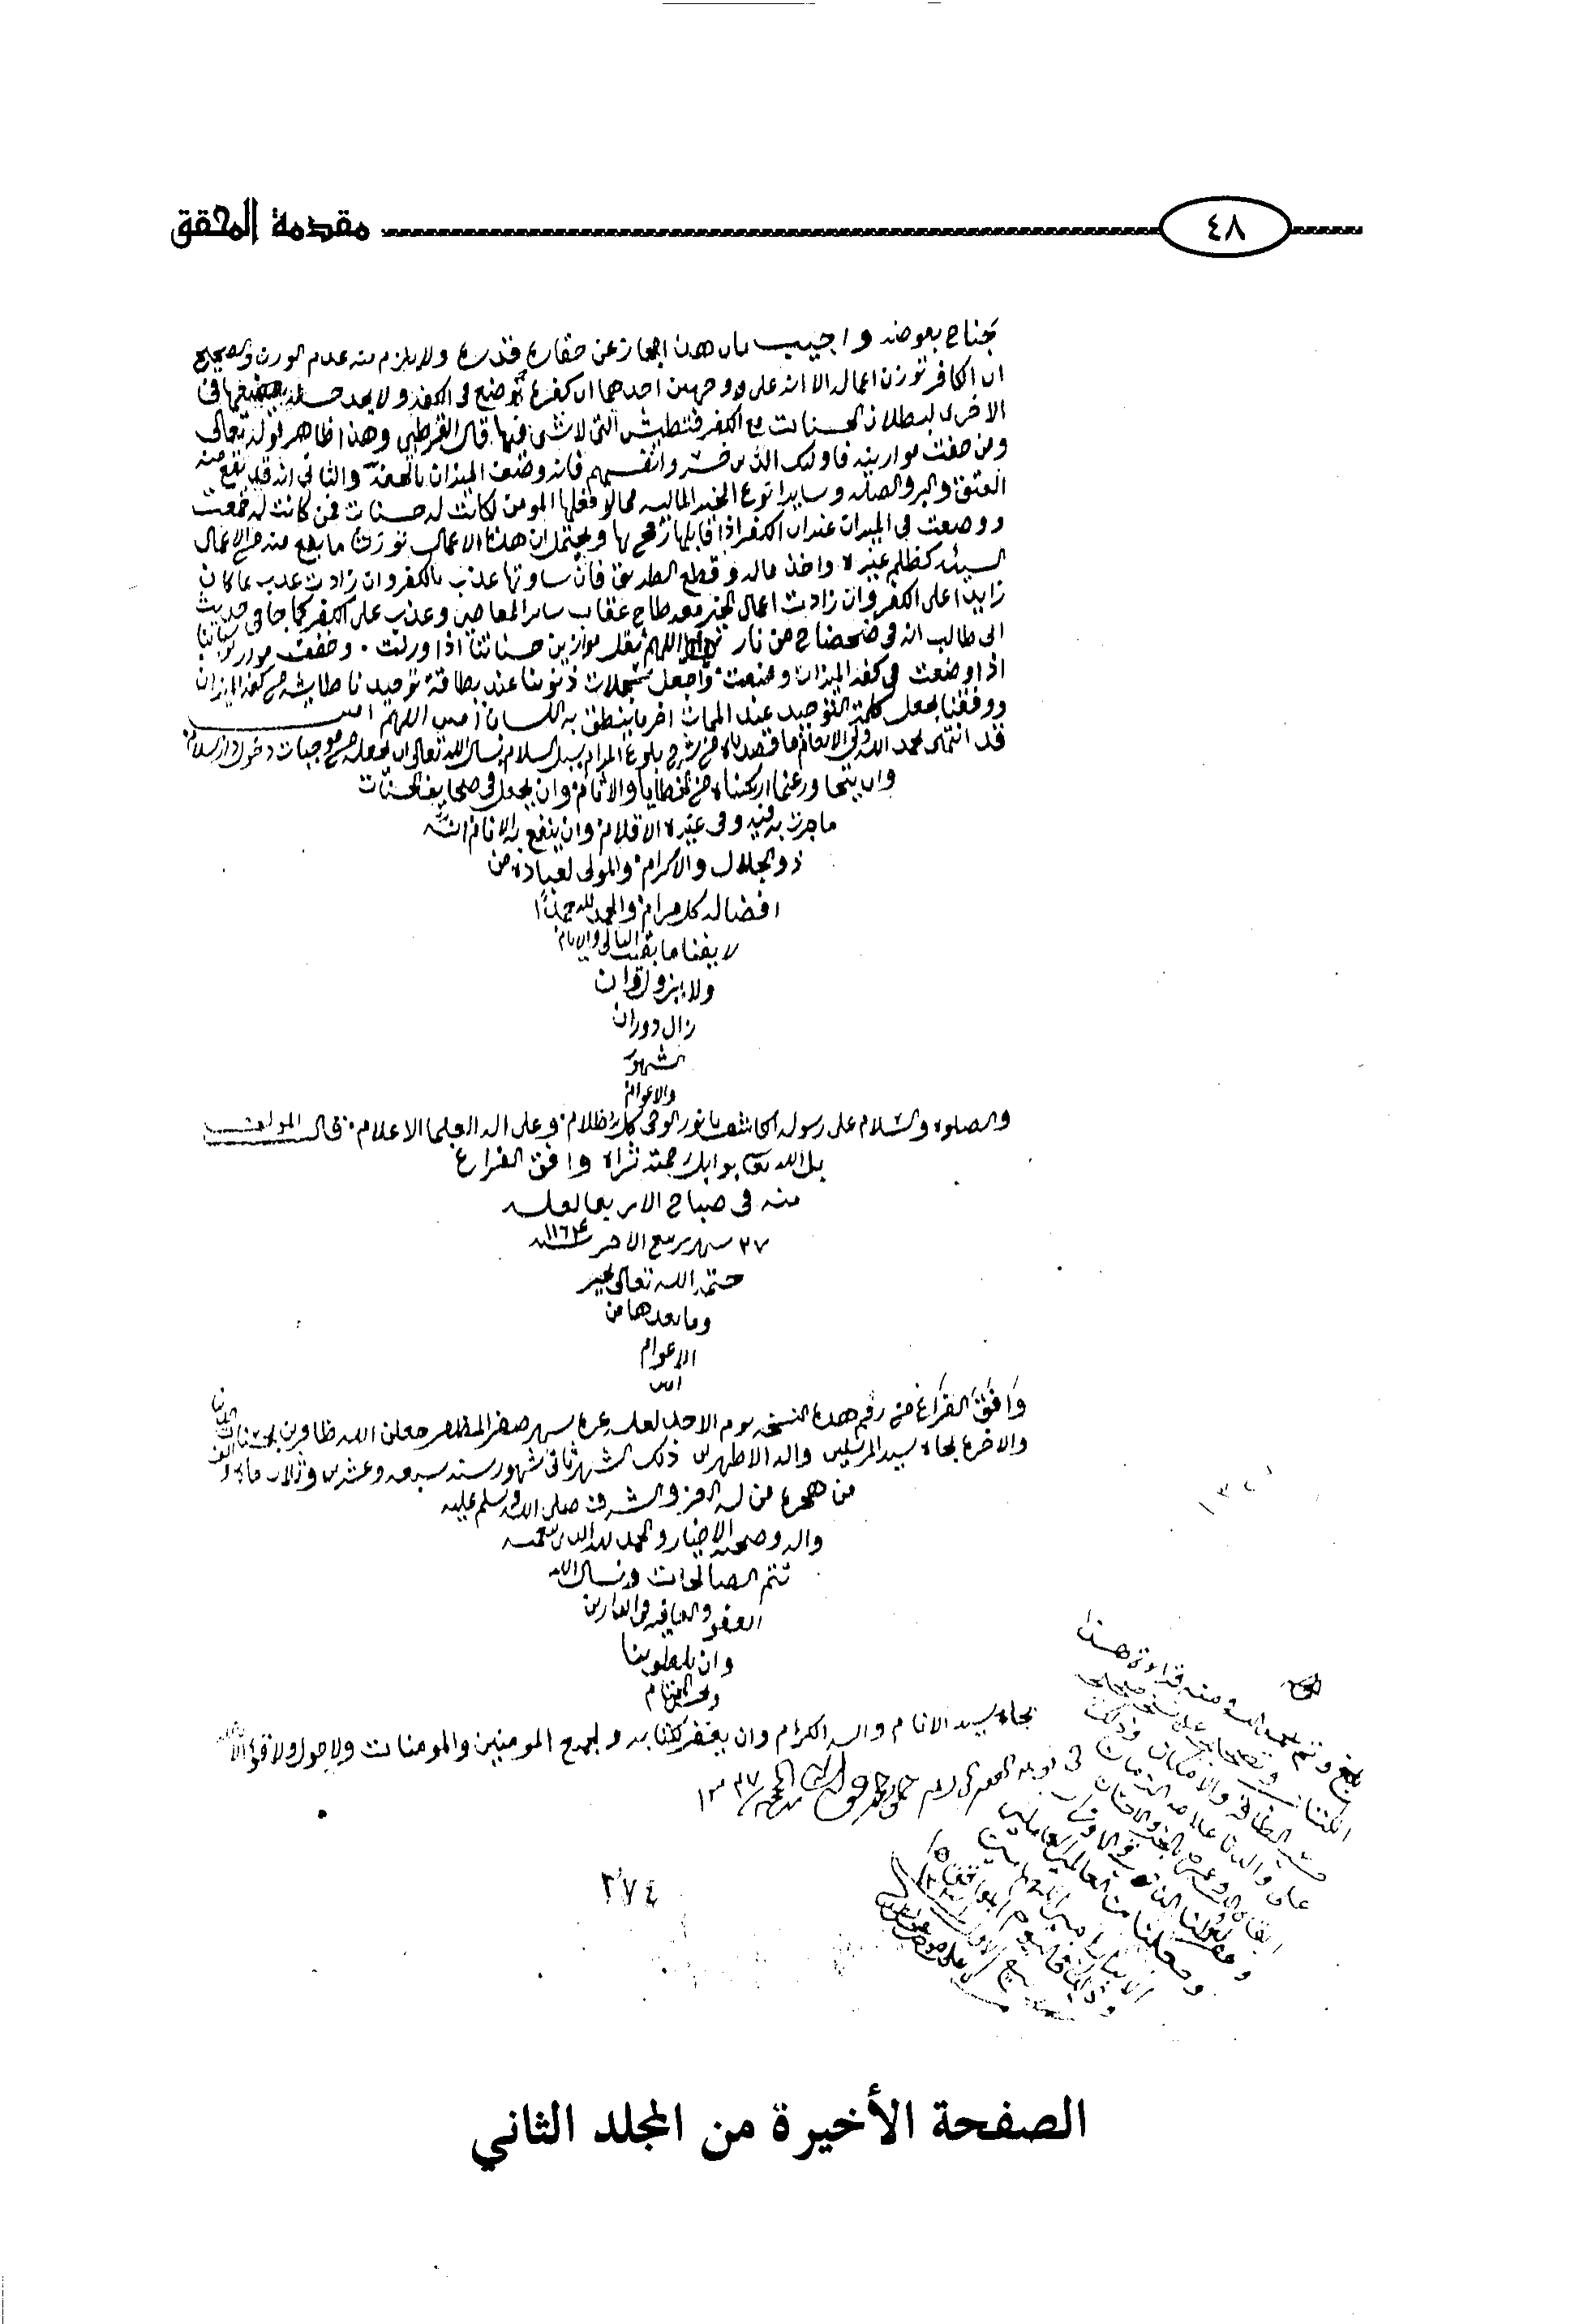 مقدمة المحقق
٤٨
جناح بعوضه واجيب بان هذا مجاز عن حقارة قدره ولا يلزم منه عدم الوزن والصحيح
ان الكافر توزن اعماله الا انه على وجهين احدهما ان كفره يوضع في الكفه ولا يجد حسنه يضعها في
الاخرى لبطلان الحسنات مع الكفر فتطيش التي لا شي فيها قال القرطبي وهذا ظاهر قوله تعالى
ومن خفت موازينه فاوليك الذين خسروا انفسهم فانه وصف الميزان بالخفة والثاني انه قد يقع منه
العتق والبر والصله وساير انواع الخير الماليه مما لو فعلها المومن لكانت له حسنات فمن كانت له جمعت
ووضعت في الميزان غير ان الكفر اذا قابلها رجح بها ويحتمل ان هذه الاعمال توزن ما يقع منه من الاعمال
السيئه كظلم غيره واخذ ماله وقطع الطريق فان ساوتها عذب بالكفر وان زادت عذب بما كان
زايدا على الكفر وان زادت اعمال الخير معه طاح عقاب ساير المعاصي وعذب على الكفر كما جا في حديث
ابي طالب انه في ضحضاح من نار اللهم ثقل موازين حسناتنا اذا وزنت وخفف موازين سياتنا
اذا وضعت في كفه الميزان وضعت واجعل سجلات ذنوبنا عند بطاقة توحيدنا طايشه من كفه الميزان
ووفقنا بجعل كلمة التوحيد عند الممات اخر ما ينطق به اللسان امين اللهم امين
قد انتهى بحمد الله ولي الانعام ما قصدناه من شرح بلوغ المرام سبل السلام نسال الله تعالى ان يجعله من موجبات دخول دار السلام
وان يتجاوز عما ارتكبناه من الخطايا والاثام وان يجعل في صحايف الحسنات
ما جرت به فيه وفي غيره الاقلام وان ينفع به الانام انه
ذو الجلال والاكرام والمولى لعباده من
افضاله كل مرام والحمد لله حمدا
لا يفنا ما بقيت الليالي والايام
ولا يزول وان
زال دوران
الشهور
والاعوام
والصلوه والسلام على رسوله الكاشف بانوار الوحي كل ظلام وعلى اله العلما الاعلام قال المولف
بل الله تعالى بوابل رحمته ثراه وافق الفراغ
منه في صباح الاربعا لعله
٢٧ شهر ربيع الاخر سنه ١١٦٤
ختمه الله تعالى بخير
وما بعدها من
الاعوام
امين
وافق الفراغ من رقم هذه النسخه يوم الاحد لعله غره شهر صفر المظفر جعلنا الله ظافرين بحسنات الدنيا
والاخره بجاه سيد المرسلين واله الاطهرين ذلك الشهر ثاني شهور سنه سبعه وعشرين وثلاث مايه والف
من هجرة من له العز والشرف صلى الله وسلم عليه
واله وصحبه الاخيار والحمد لله الذي بنعمته
تتم الصالحات ونسال الله
العفو والعافيه في الدارين
وان يلطف بنا
وبحسن الختام
بجاه سيد الانام واله الكرام وان يغفر لكاتبه ولجميع المومنين والمومنات ولا حول ولا قوة الا بالله
١٣٢٧
٢٧٤
الصفحة الأخيرة من المجلد الثاني